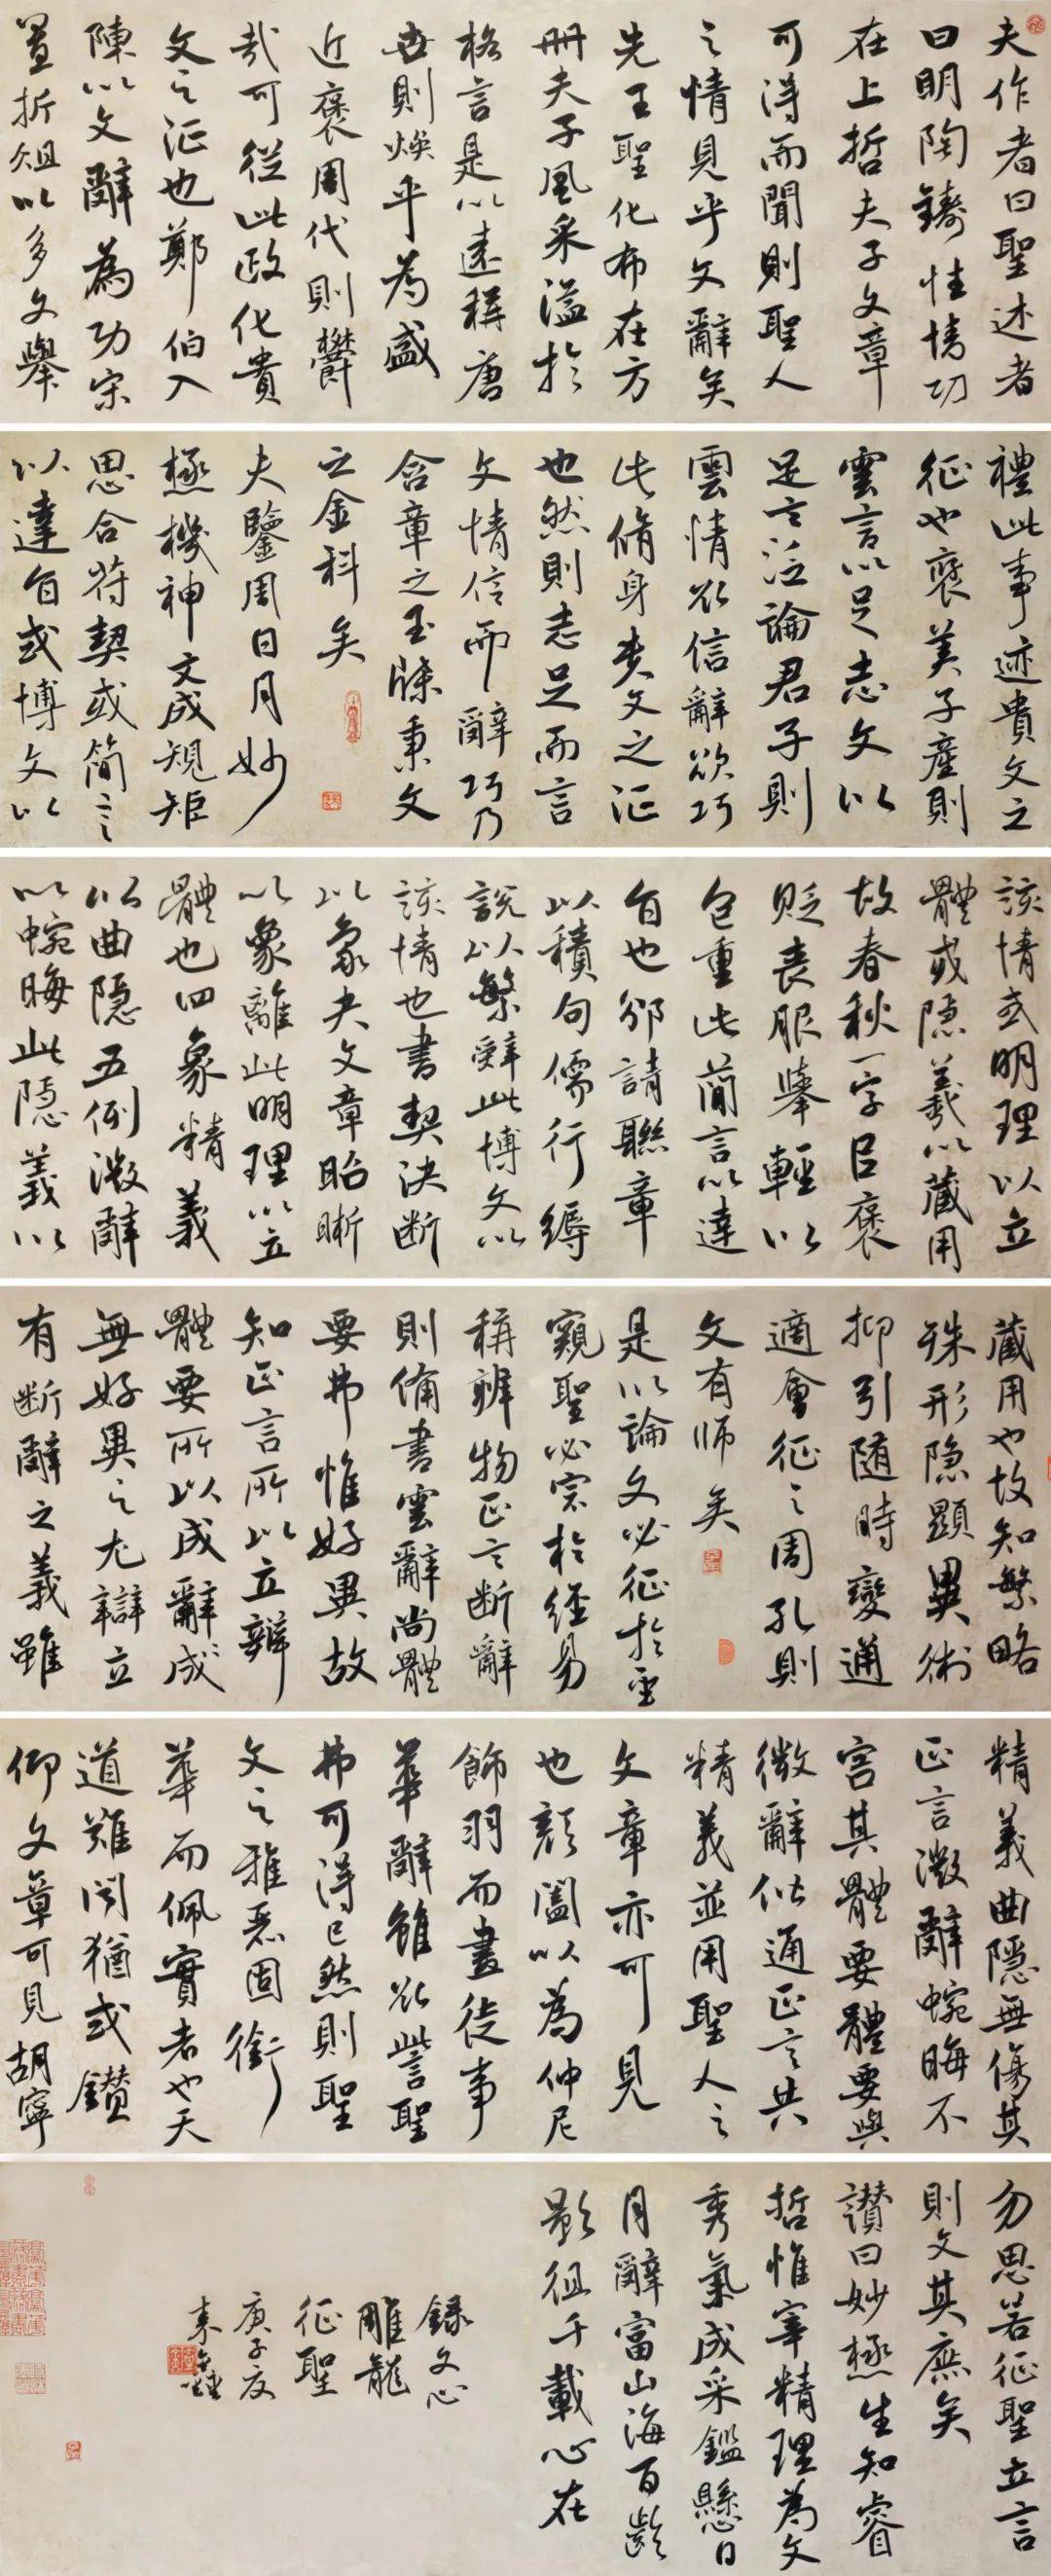 夫作者曰聖述者
曰明陶鑄性情功
在上哲夫子文章
可得而聞則聖人
之情見乎文辭矣
先王聖化布在方
冊夫子風采溢於
格言是以遠稱唐
世則煥乎為盛
近褒周代則鬱
哉可從此政化貴
文之征也鄭伯入
陳以文辭為功宋
置折俎以多文舉
禮此事迹貴文之
征也褒美子產則
雲言以足志文以
足言泛論君子則
雲情欲信辭欲巧
此脩身貴文之征
也然則志足而言
文情信而辭巧乃
含章之玉牒秉文
之金科矣
夫鑒周日月妙
極機神文成規矩
思合符契或簡言
以達旨或博文以
該情或明理以立
體或隱義以藏用
故春秋一字以褒
貶喪服舉輕以
包重此簡言以達
旨也邠詩聯章
以積句儒行縟
說以繁辭此博文以
該情也書契決斷
以象夬文章昭晰
以象離此明理以立
體也四象精義
以曲隱五例微辭
以婉晦此隱義以
藏用也故知繁略
殊形隱顯異術
抑引随時變通
適會征之周孔則
文有師矣
是以論文必征於聖
窺聖必宗於經易
稱辨物正言斷辭
則備書雲辭尚體
要弗惟好異故
知正言所以立辯
體要所以成辭成
無好異之尤辯立
有斷辭之義雖
精義曲隱無傷其
正言微辭婉晦不
害其體要體要與
微辭偕通正言共
精義並用聖人之
文章亦可見
也顏闔以為仲尼
飾羽而畫徒事
華辭雖欲訾聖
弗可得已然則聖
文之雅麗固銜
華而佩實者也天
道難聞猶或鑽
仰文章可見胡寧
勿思若征聖立言
則文其庶矣
讚曰妙極生知睿
哲惟宰精理為文
秀氣成采鑑懸日
月辭富山海百齡
影徂千載心在
錄文心
雕龍
征聖
庚子夏